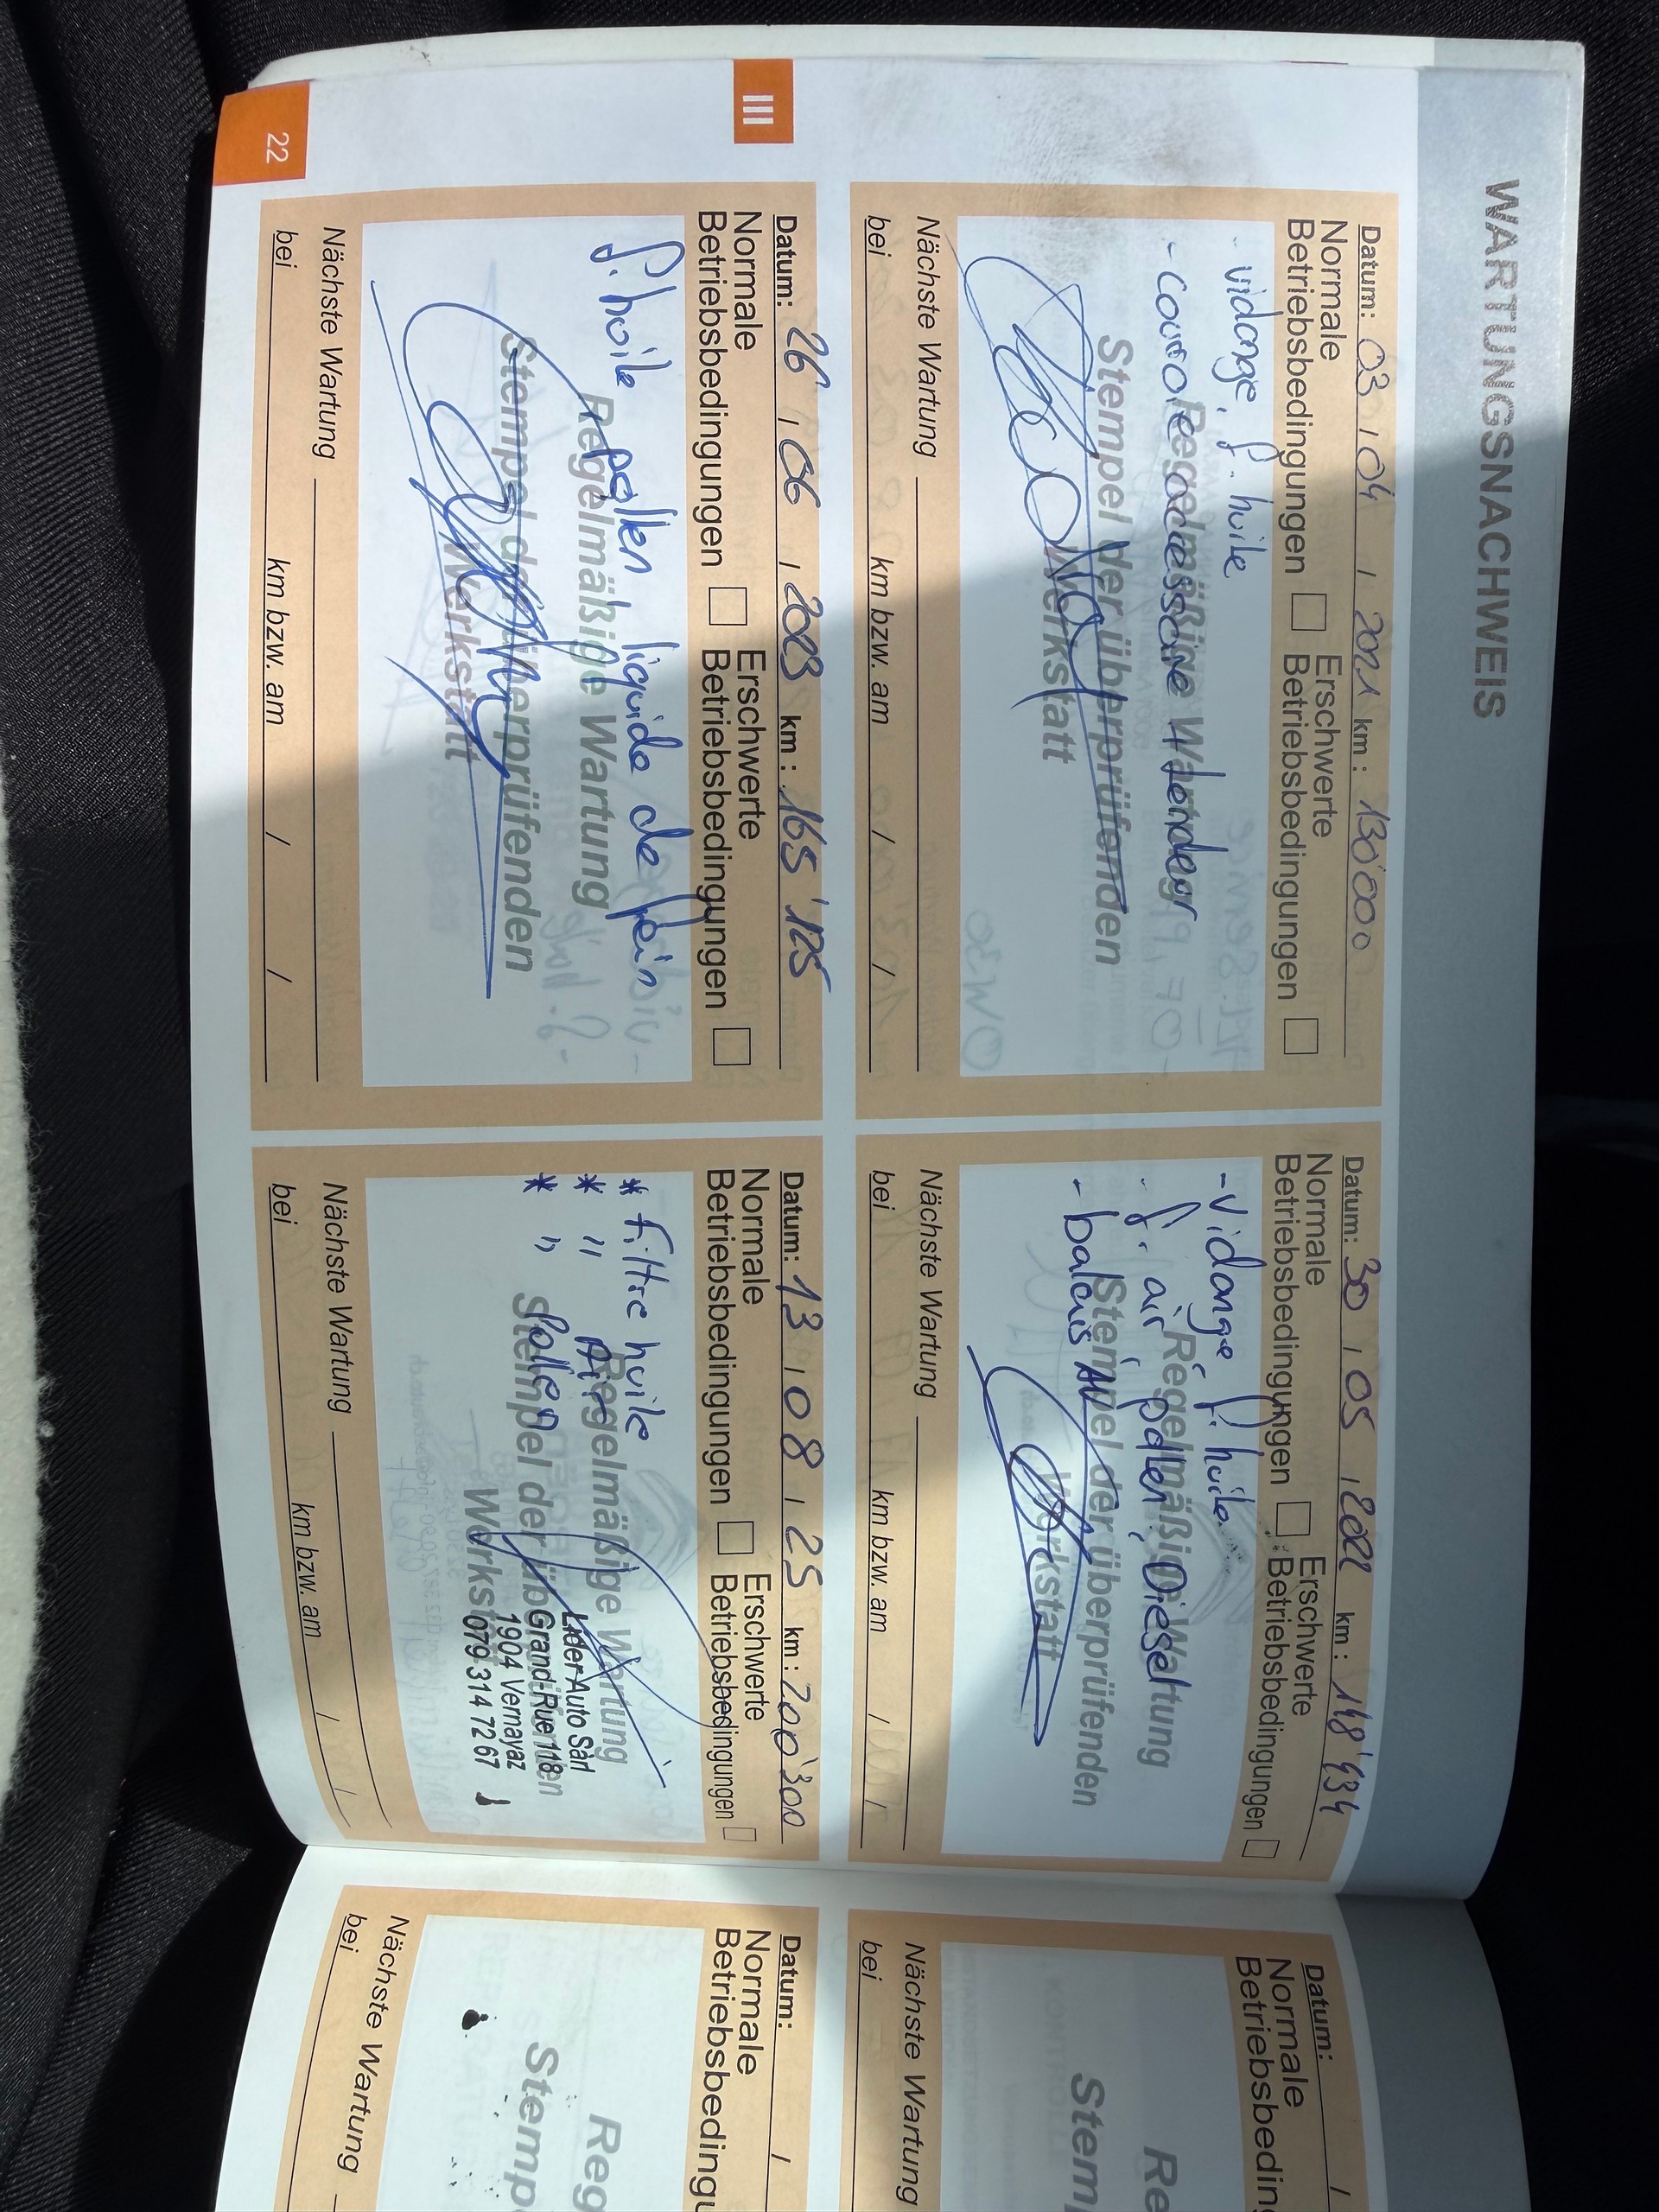 WARTUNGSNACHWEIS
Datum: 03 / 04 / 2021 km : 130'000
Normale Betriebsbedingungen
Erschwerte Betriebsbedingungen
- vidange, f. huile
- courroie accessoire + tendeur
Regelmäßige Wartung
Stempel der überprüfenden
Werkstatt
Nächste Wartung
bei km bzw. am / /
Datum: 30 / 05 / 2022 km : 148'434
Normale Betriebsbedingungen
Erschwerte Betriebsbedingungen
- vidange, f. huile
- f. air, pollen, Diesel
- balais AV
Regelmäßige Wartung
Stempel der überprüfenden
Werkstatt
Nächste Wartung
bei km bzw. am / /
III
Datum: 26 / 06 / 2023 km : 165'125
Normale Betriebsbedingungen
Erschwerte Betriebsbedingungen
f. huile pollen liquide de frein
Regelmäßige Wartung
Stempel der überprüfenden
Werkstatt
Nächste Wartung
bei km bzw. am / /
Datum: 13 / 08 / 25 km : 200'300
Normale Betriebsbedingungen
Erschwerte Betriebsbedingungen
* filtre huile
* " Air
* " Pollen
Regelmäßige Wartung
Stempel der überprüfenden
Werkstatt
Lider Auto Sàrl
Grand-Rue 118
1904 Vernayaz
079 314 72 67
Nächste Wartung
bei km bzw. am / /
22
Datum: /
Normale
Betriebsbedin
Re
Stem
Nächste Wartung
bei
Datum: /
Normale
Betriebsbeding
Reg
Stemp
Nächste Wartung
bei